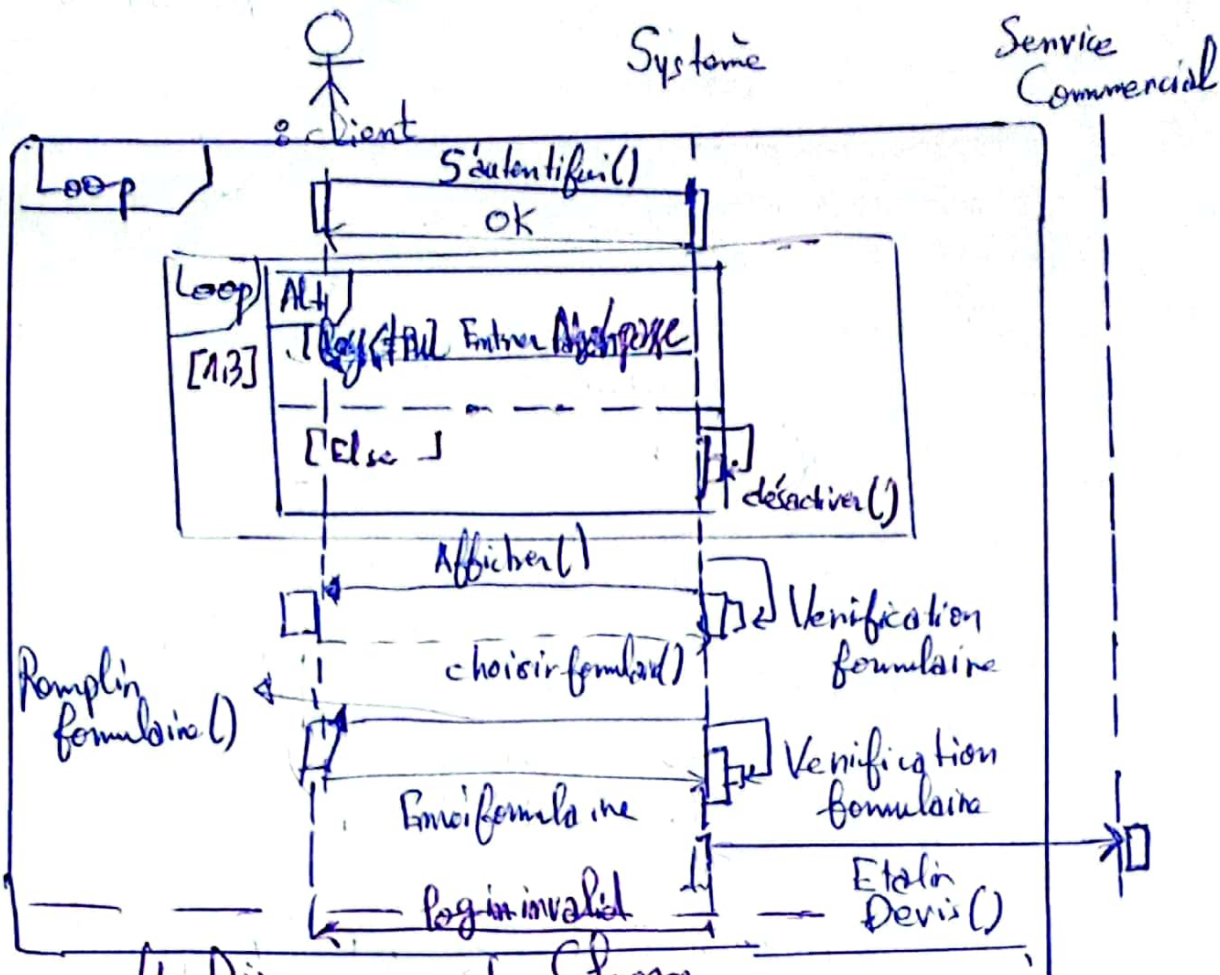 Système
Service
Commercial
: client
Loop
S'autentifier()
OK
Loop
Alt
[1,3]
Entrer
[Else]
désactiver()
Afficher()
Verification
formulaire
choisir formulaire()
Remplir
formulaire()
Verification
formulaire
Envoi formulaire
Etalir
Devis()
login invalid